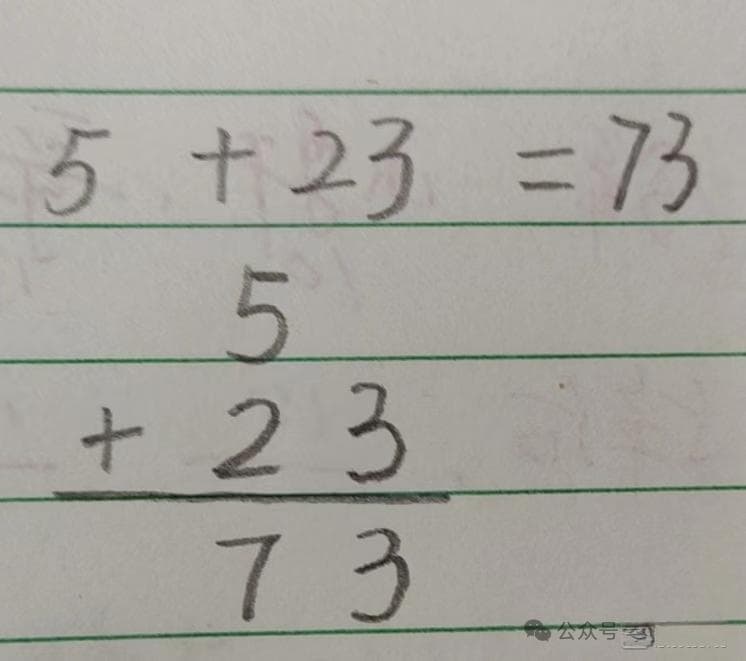 5 + 23 = 73
5
+ 2 3
7 3
公众号